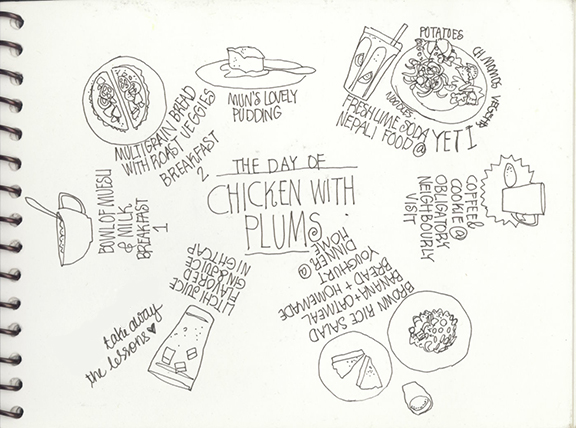 THE DAY OF
CHICKEN WITH
PLUMS.
BOWL OF MUESLI
& MILK
BREAKFAST
1
MULTIGRAIN BREAD
WITH ROAST VEGGIES
BREAKFAST
2
MUN'S LOVELY
PUDDING
POTATOES
CH. MOMOS VEGGIES
NOODLES
FRESH LIME SODA
NEPALI FOOD @ YETI
COFFEE &
COOKIE @
OBLIGATORY
NEIGHBOURLY
VISIT
BROWN RICE SALAD
BANANA+OATMEAL
BREAD + HOMEMADE
YOUGHURT
DINNER @
HOME
LITCHI JUICE
FLAVORED
GIN & JUICE
NIGHTCAP
take away
the lessons ♥